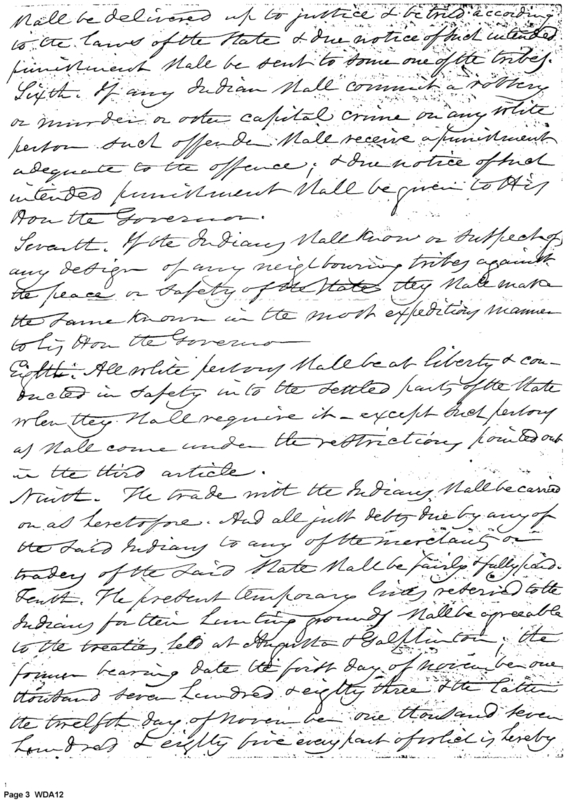 shall be delivered up to justice & be tried according
to the laws of the State & due notice of such intended
punishment shall be sent to some one of the tribes.
Sixth. If any Indian shall commit a robbery
or murder or other capital crime on any white
person such offender shall receive a punishment
adequate to the offence; & due notice of such
intended punishment shall be given to His
Hon the Governor.
Seventh. If the Indians shall know or suspect of
any design of any neighbouring tribes against
the peace or safety of the State they shall make
the same known in the most expeditious manner
to his Hon the Governor
Eighth. All white persons shall be at liberty & con-
ducted in safety in to the settled parts of the State
when they shall require it – except such persons
as shall come under the restrictions pointed out
in the third article.
Ninth. The trade with the Indians shall be carried
on as heretofore. And all just debts due by any of
the said Indians to any of the merchants or
traders of the said State shall be fairly & fully paid.
Tenth. The present temporary lines reserved to the
Indians for their hunting grounds shall be agreeable
to the treaties held at Augusta & Galphinton; the
former bearing date the first day of November one
thousand seven hundred & eighty three & the latter
the twelfth day of November one thousand seven
hundred & eighty five every part of which is hereby
Page 3 WDA12